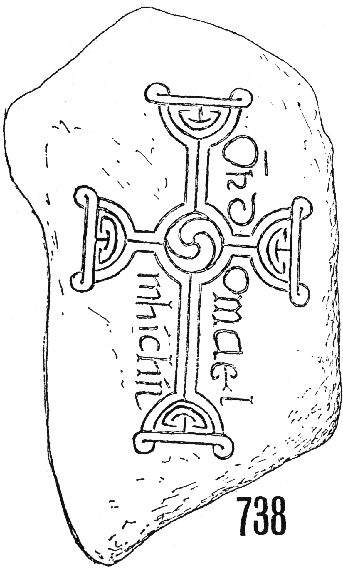 Ōrd
omael
mhíchíl
738